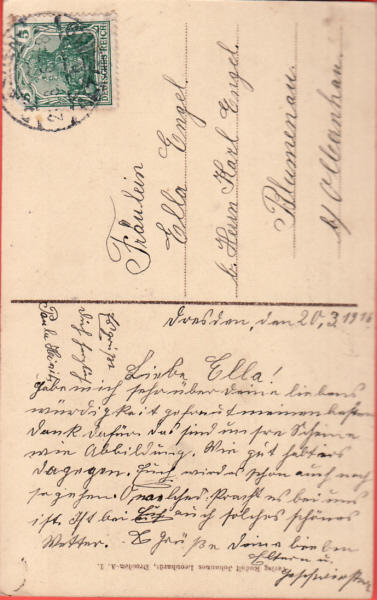 5
DEUTSCHES REICH
Fräulein
Ella Engel.
b. Herrn Karl Engel.
Blumenau.
b/ Olbernhau.
Dresden, den 20.3.1916
Liebe Ella!
habe mich sehr über deine liebens
würdigkeit gefreut meinen besten
Dank dafür. das sind unsre
wie Abbildung. Wie gut
dagegen. Euch wird es schon auch noch
so gehen. welches Pracht es bei uns
ist. Ist bei Euch auch solches schönes
Wetter. Grüße deine lieben
Eltern u.
Geschwister
Verlag Rudolf Johannes Leonhardt, Dresden-A. 1.